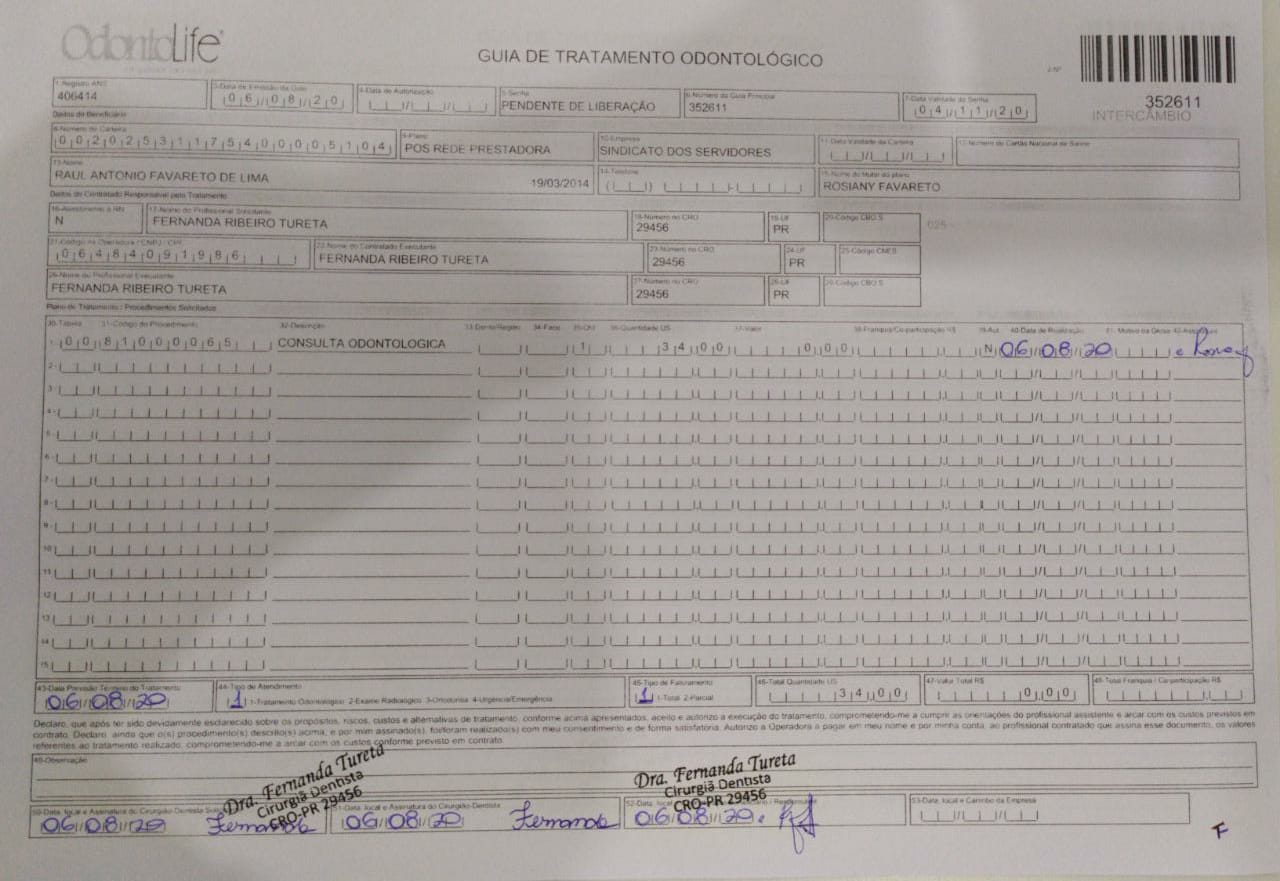 OdontoLife
GUIA DE TRATAMENTO ODONTOLÓGICO
2-Nº
352611
INTERCÂMBIO
1-Registro ANS
406414
3-Data de Emissão da Guia
06/08/20
4-Data de Autorização
5-Senha
PENDENTE DE LIBERAÇÃO
6-Número da Guia Principal
352611
7-Data Validade da Senha
04/11/20
Dados do Beneficiário
8-Número da Carteira
00202531175400005104
9-Plano
POS REDE PRESTADORA
10-Empresa
SINDICATO DOS SERVIDORES
11-Data Validade da Carteira
12-Número do Cartão Nacional de Saúde
13-Nome
RAUL ANTONIO FAVARETO DE LIMA 19/03/2014
14-Telefone
15-Nome do titular do plano
ROSIANY FAVARETO
Dados do Contratado Responsável pelo Tratamento
16-Atendimento a RN
N
17-Nome do Profissional Solicitante
FERNANDA RIBEIRO TURETA
18-Número no CRO
29456
19-UF
PR
20-Código CBO S
025-
21-Código na Operadora / CNPJ / CPF
06484091986
22-Nome do Contratado Executante
FERNANDA RIBEIRO TURETA
23-Número no CRO
29456
24-UF
PR
25-Código CNES
26-Nome do Profissional Executante
FERNANDA RIBEIRO TURETA
27-Número no CRO
29456
28-UF
PR
29-Código CBO S
Plano de Tratamento / Procedimentos Solicitados
30-Tabela 31-Código do Procedimento 32-Descrição 33-Dente/Região 34-Face 35-Qtd 36-Quantidade US 37-Valor 38-Franquia/Co-participação R$ 39-Aut 40-Data de Realização 41- Motivo da Glosa 42-Assinatura
1- 00 81000065 CONSULTA ODONTOLOGICA 1 34 00 0 00 N 06/08/20
2-
3-
4-
5-
6-
7-
8-
9-
10-
11-
12-
13-
14-
15-
43-Data Previsão Término do Tratamento
06/08/20
44-Tipo de Atendimento
1 1-Tratamento Odontológico 2-Exame Radiológico 3-Ortodontia 4-Urgência/Emergência
45-Tipo de Faturamento
1 1-Total 2-Parcial
46-Total Quantidade US
34 00
47-Valor Total R$
0 00
48-Total Franquia / Co-participação R$
Declaro, que após ter sido devidamente esclarecido sobre os propósitos, riscos, custos e alternativas de tratamento, conforme acima apresentados, aceito e autorizo a execução do tratamento, comprometendo-me a cumprir as orientações do profissional assistente e arcar com os custos previstos em
contrato. Declaro, ainda que o(s) procedimento(s) descrito(s) acima, e por mim assinado(s), foi/foram realizado(s) com meu consentimento e de forma satisfatória. Autorizo a Operadora a pagar em meu nome e por minha conta, ao profissional contratado que assina esse documento, os valores
referentes ao tratamento realizado, comprometendo-me a arcar com os custos conforme previsto em contrato.
49-Observação
Dra. Fernanda Tureta
Cirurgiã Dentista
CRO-PR 29456
Dra. Fernanda Tureta
Cirurgiã Dentista
CRO-PR 29456
50-Data, local e Assinatura do Cirurgião-Dentista
06/08/20 Fernanda
51-Data, local e Assinatura do Cirurgião-Dentista
06/08/20 Fernanda
52-Data, local
06/08/20
53-Data, local e Carimbo da Empresa
F